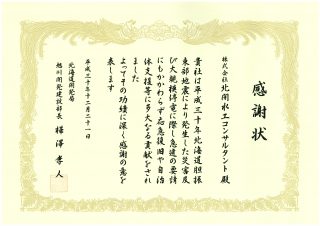 感謝状
株式会社北開水工コンサルタント 殿
貴社は平成三十年北海道胆振
東部地震により発生した災害及
び大規模停電に際し急遽の要請
にもかかわらず応急復旧や自治
体支援等に多大なる貢献をされ
ました
よってその功績に深く感謝の意を
表します
平成三十年十二月二十一日
北海道開発局
旭川開発建設部長 樺澤孝人